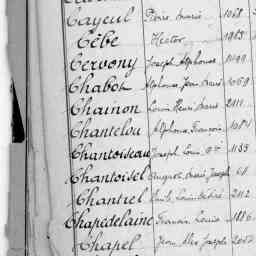 Cayeul Pierre Marie 1078
Cèbe Hector 1983
Cervony Joseph Alphonse 1499
Chabot Alphonse Jean Marie 1059
Chainon Louis Henri Marie 2111
Chantelou Alphonse François 1084
Chantoiseau Joseph Louis 1133
Chantoisel Auguste Marie Joseph
Chantrel Emile Louis 2112
Chapedelaine Francis Louis 1886
Chapel Jean Alex Joseph